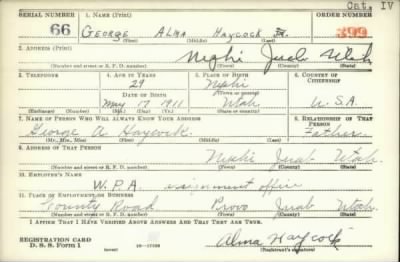 Cat. IV
SERIAL NUMBER 1. NAME (Print) ORDER NUMBER
66 GEORGE ALMA HAYCOCK Jr. 399
(First) (Middle) (Last)
2. ADDRESS (Print)
Nephi Juab Utah
(Number and street or R. F. D. number) (Town) (County) (State)
3. TELEPHONE 4. AGE IN YEARS 5. PLACE OF BIRTH 6. COUNTRY OF CITIZENSHIP
29 Nephi
DATE OF BIRTH (Town or county)
May 17 1911 Utah U.S.A.
(Exchange) (Number) (Mo.) (Day) (Yr.) (State or country)
7. NAME OF PERSON WHO WILL ALWAYS KNOW YOUR ADDRESS 8. RELATIONSHIP OF THAT PERSON
George A Haycock. Father.
(Mr., Mrs., Miss) (First) (Middle) (Last)
9. ADDRESS OF THAT PERSON
Nephi Juab Utah.
(Number and street or R. F. D. number) (Town) (County) (State)
10. EMPLOYER'S NAME
W.P.A. office
11. PLACE OF EMPLOYMENT OR BUSINESS
County Road. Provo Utah.
(Number and street or R. F. D. number) (Town) (County) (State)
I AFFIRM THAT I HAVE VERIFIED ABOVE ANSWERS AND THAT THEY ARE TRUE.
REGISTRATION CARD
D. S. S. FORM 1 (over) Alma Haycock
(Registrant's signature)